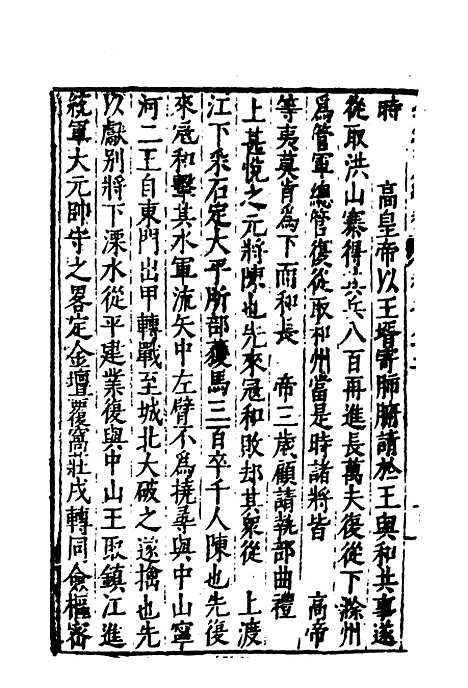 時　高皇帝以王壻寄帥腑請於王與和共事遂
從取洪山寨得其兵八百再進長萬夫復從下滁州
爲管軍總管復從取和州當是時諸將皆　高帝
等夷莫肯爲下而和長　帝三歲顧請執部曲禮
上甚悅之元將陳也先來冦和敗却其衆從　上渡
江下采石定太平所部獲馬三百卒千人陳也先復
來冦和擊其水軍流矢中左臂不爲撓尋與中山寧
河二王自東門出甲轉戰至城北大破之遂擒也先
以獻別將下溧水從平建業復與中山王取鎮江進
統軍大元帥守之畧定金壇覆窩壯戌轉同僉樞密